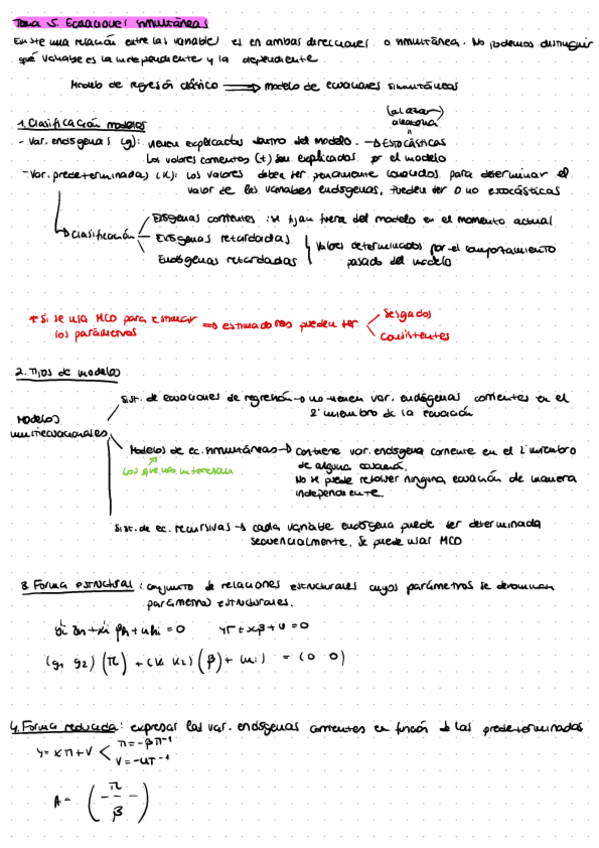 Tema 5. Ecuaciones simultáneas
Existe una relación entre las variables es en ambas direcciones o simultánea. No podemos distinguir
qué variable es la independiente y la dependiente
Modelo de regresión clásico ⟹ modelo de ecuaciones simultáneas
1. Clasificación modelos
(al azar)
aleatoria
"
- Var. endógenas (g): vienen explicadas dentro del modelo. → ESTOCÁSTICAS
Los valores corrientes (t) son explicados por el modelo
- Var. predeterminadas (K): los valores deben ser previamente conocidos para determinar el
valor de las variables endógenas, pueden ser o no estocásticas
↳ Clasificación
Exógenas corrientes: se fijan fuera del modelo en el momento actual
Exógenas retardadas
Endógenas retardadas
Valores determinados por el comportamiento
pasado del modelo
* Si se usa MCO para estimar
los parámetros
⟹ estimadores pueden ser
Sesgados
Consistentes
2. Tipos de modelos
Modelos
multiecuacionales
Sist. de ecuaciones de regresión → no tienen var. endógenas corrientes en el
2º miembro de la ecuación
Modelos de ec. simultáneas → contiene var. endógena corriente en el 2º miembro
de alguna ecuación.
No se puede resolver ninguna ecuación de manera
independiente
Los que nos interesan
Sist. de ec. recursivas → cada variable endógena puede ser determinada
secuencialmente. Se puede usar MCO
3. Forma estructural: conjunto de relaciones estructurales cuyos parámetros se denominan
parámetros estructurales.
YΓ + Xβ + U = 0
= (0 0)
4. Forma reducida: expresar las var. endógenas corrientes en función de las predeterminadas
Y = XΠ + V
Π = -βΓ⁻¹
V = -UΓ⁻¹
A =
β